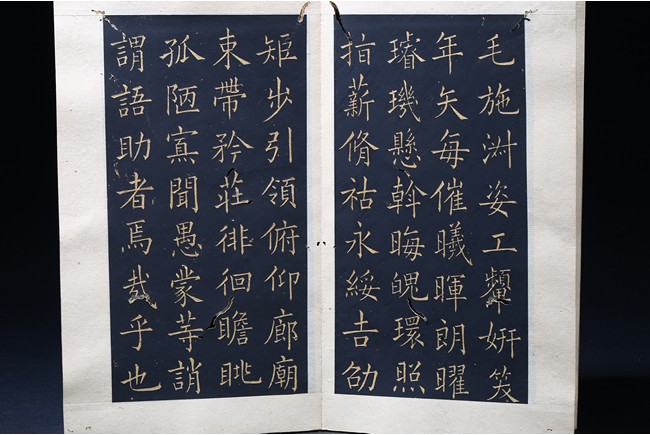 毛施淑姿工顰妍笑
年矢每催曦暉朗曜
璿璣懸斡晦魄環照
指薪脩祜永綏吉劭
矩步引領俯仰廊廟
束帶矜莊徘徊瞻眺
孤陋寡聞愚蒙等誚
謂語助者焉哉乎也